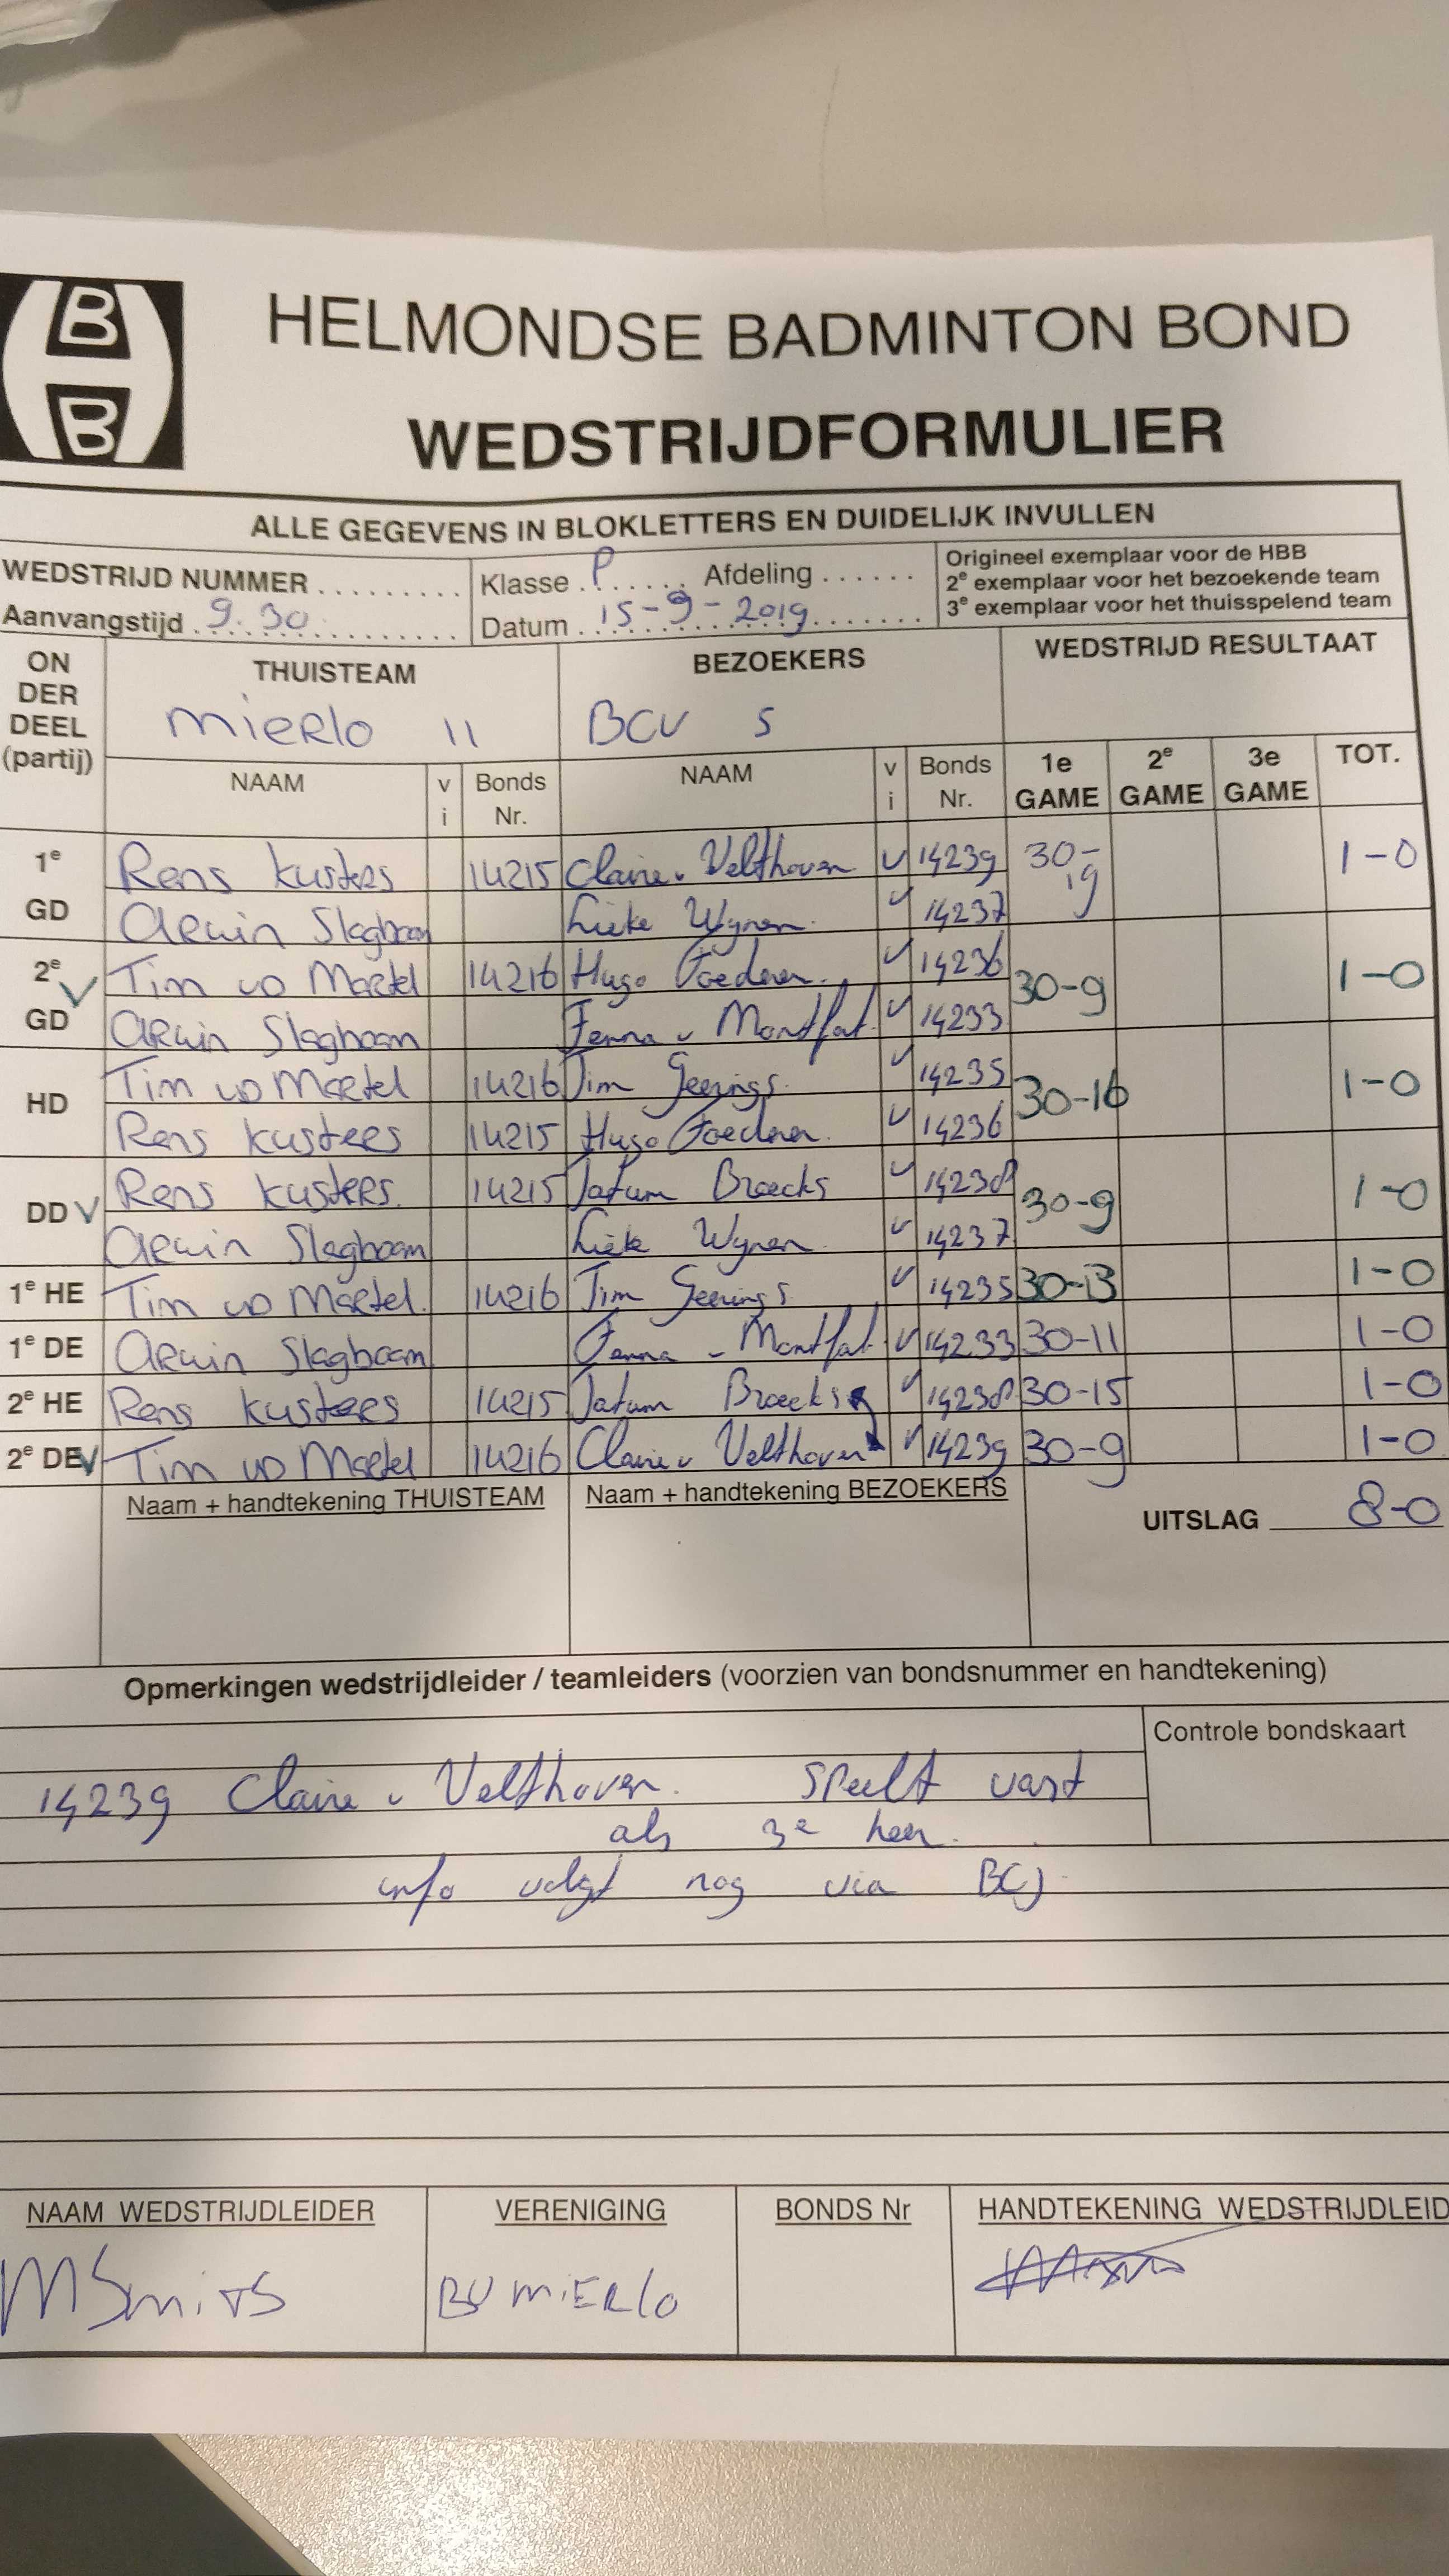 HELMONDSE BADMINTON BOND
B
B
WEDSTRIJDFORMULIER
ALLE GEGEVENS IN BLOKLETTERS EN DUIDELIJK INVULLEN
WEDSTRIJD NUMMER ......... Klasse . P ..... Afdeling ...... Origineel exemplaar voor de HBB
2e exemplaar voor het bezoekende team
Aanvangstijd 9.30 Datum 15-9-2019 3e exemplaar voor het thuisspelend team
ON DER DEEL (partij) THUISTEAM BEZOEKERS WEDSTRIJD RESULTAAT
MIERLO 11 BCV 5
NAAM v i Bonds Nr. NAAM v i Bonds Nr. 1e GAME 2e GAME 3e GAME TOT.
1e Rens Kusters 14215 Claire v Velthoven v 14239 30-19 1-0
GD Arwin Slagboom Lieke Wijnen v 14237
2e v Tim vd Martel 14216 Hugo v 14236 30-9 1-0
GD Arwin Slagboom Fenna v Montfort v 14233
HD Tim vd Martel 14216 Tim Geerings v 14235 30-16 1-0
Rens Kusters 14215 Hugo v 14236
DD v Rens Kusters 14215 Jatum Broecks v 14238 30-9 1-0
Arwin Slagboom Lieke Wijnen v 14237
1e HE Tim vd Martel 14216 Tim Geerings v 14235 30-13 1-0
1e DE Arwin Slagboom Fenna v Montfort v 14233 30-11 1-0
2e HE Rens Kusters 14215 Jatum Broecks v 14238 30-15 1-0
2e DE v Tim vd Martel 14216 Claire v Velthoven v 14239 30-9 1-0
Naam + handtekening THUISTEAM Naam + handtekening BEZOEKERS UITSLAG 8-0
Opmerkingen wedstrijdleider / teamleiders (voorzien van bondsnummer en handtekening)
Controle bondskaart
14239 Claire v Velthoven. Speelt vast
als 3e heer.
info volgt nog via BCJ.
NAAM WEDSTRIJDLEIDER VERENIGING BONDS Nr HANDTEKENING WEDSTRIJDLEID
M Smits BV MIERLO